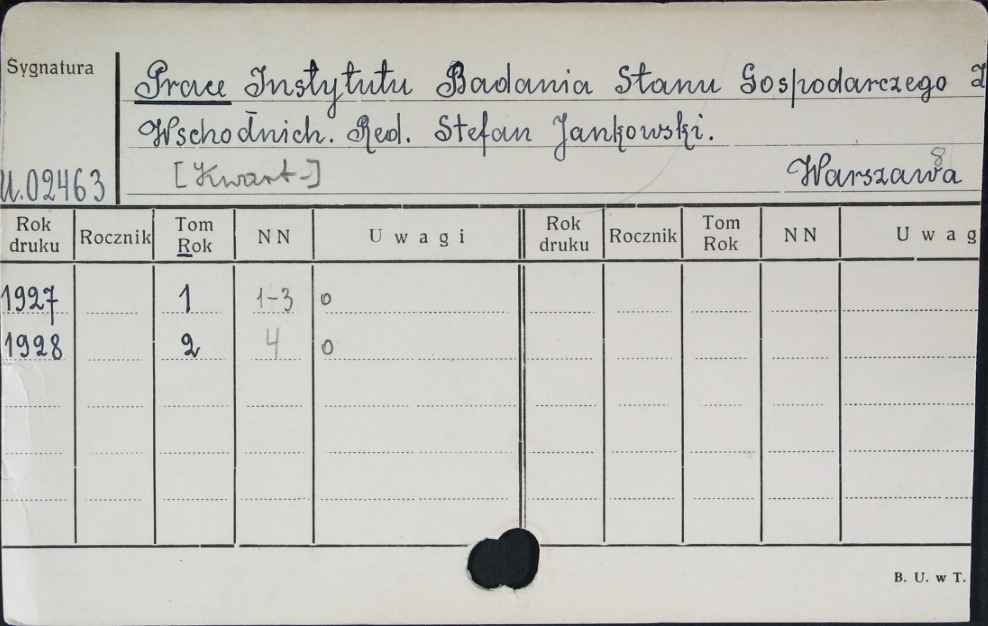 Sygnatura
Prace Instytutu Badania Stanu Gospodarczego
Wschodnich. Red. Stefan Jankowski.
[Kwart-]
8
U.02463
Warszawa
Rok druku Rocznik Tom Rok NN Uwagi Rok druku Rocznik Tom Rok NN Uwag
1927 1 1-3 o
1928 2 4 o
B. U. w T.